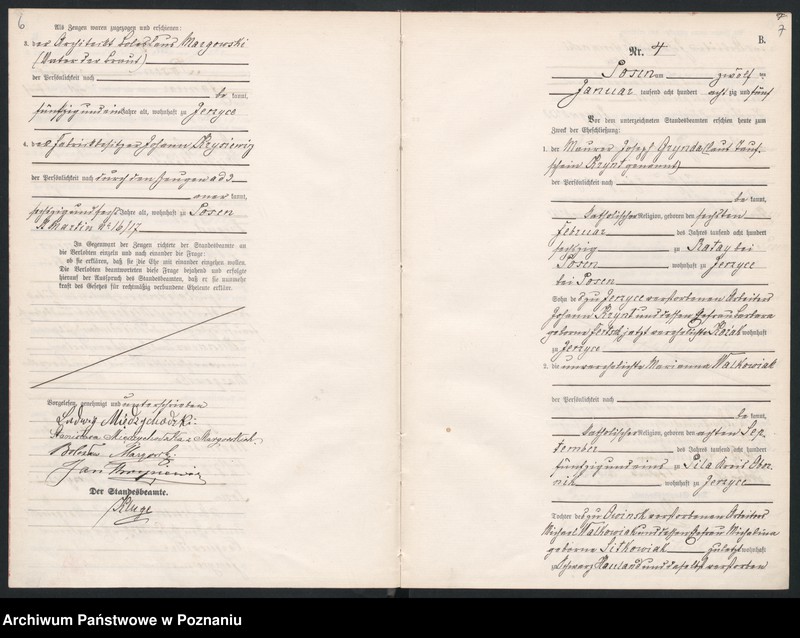 6
Als Zeugen waren zugezogen und erschienen:
3. der Architekt Boleslaus Mazgowski
(Vater der Braut)
der Persönlichkeit nach
be kannt,
fünfzig und ein Jahre alt, wohnhaft zu Jerzyce
4. der Fabrikbesitzer Johann Krysiewicz
der Persönlichkeit nach durch den Zeugen ad 3
aner kannt,
sechszig und sechs Jahre alt, wohnhaft zu Posen
St Martin No 16/17
In Gegenwart der Zeugen richtete der Standesbeamte an
die Verlobten einzeln und nach einander die Frage:
ob sie erklären, daß sie die Ehe mit einander eingehen wollen.
Die Verlobten beantworteten diese Frage bejahend und erfolgte
hierauf der Ausspruch des Standesbeamten, daß er sie nunmehr
kraft des Gesetzes für rechtmäßig verbundene Eheleute erkläre.
Vorgelesen, genehmigt und unterschrieben
Ludwig Międzychodzki
Stanisława Międzychodzka z Mazgowskich
Bolesław Mazgowski
Jan Krysiewicz
Der Standesbeamte.
Kluge
7
B.
Nr. 4
Posen am zwölf ten
Januar tausend acht hundert acht zig und fünf
Vor dem unterzeichneten Standesbeamten erschien heute zum
Zweck der Eheschließung:
1. der Maurer Joseph Grynda (laut Tauf-
schein Krynt genannt)
der Persönlichkeit nach
be kannt,
katholischer Religion, geboren den sechsten
Februar des Jahres tausend acht hundert
sechszig zu Rataj bei
Posen, wohnhaft zu Jerzyce
bei Posen
Sohn des zu Jerzyce verstorbenen Arbeiters
Johann Krynt und dessen Ehefrau Barbara
geborne jetzt verehelichte Kozak wohnhaft
zu Jerzyce
2. die unverehelichte Marianna Walkowiak
der Persönlichkeit nach
be kannt,
katholischer Religion, geboren den achten Sep-
tember des Jahres tausend acht hundert
fünfzig und eins zu Pila Kreis Obor-
nik, wohnhaft zu Jerzyce
Tochter des zu Owinsk verstorbenen Arbeiters
Michael Walkowiak und dessen Ehefrau Michalina
geborne Sitkowiak zuletzt wohnhaft
zu Schwarz Hauland und daselbst verstorben
Archiwum Państwowe w Poznaniu